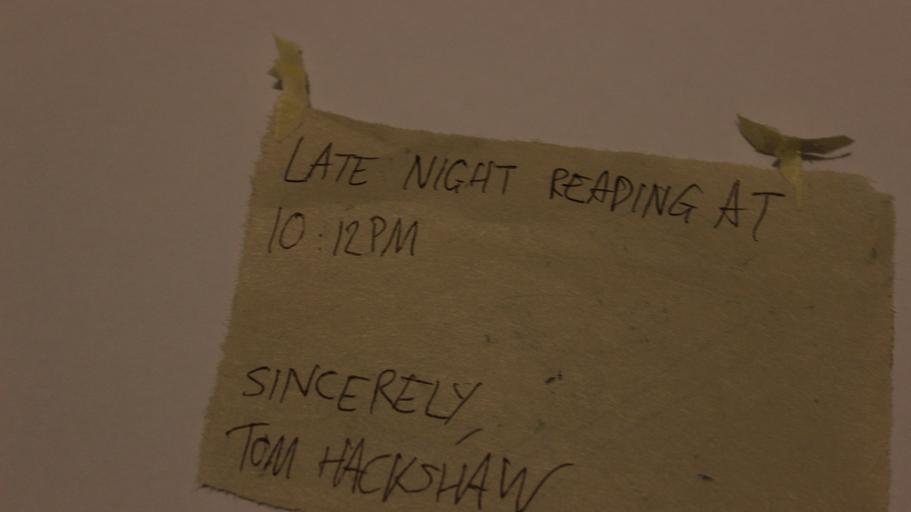 LATE NIGHT READING AT
10:12PM
SINCERELY,
TOM HACKSHAW